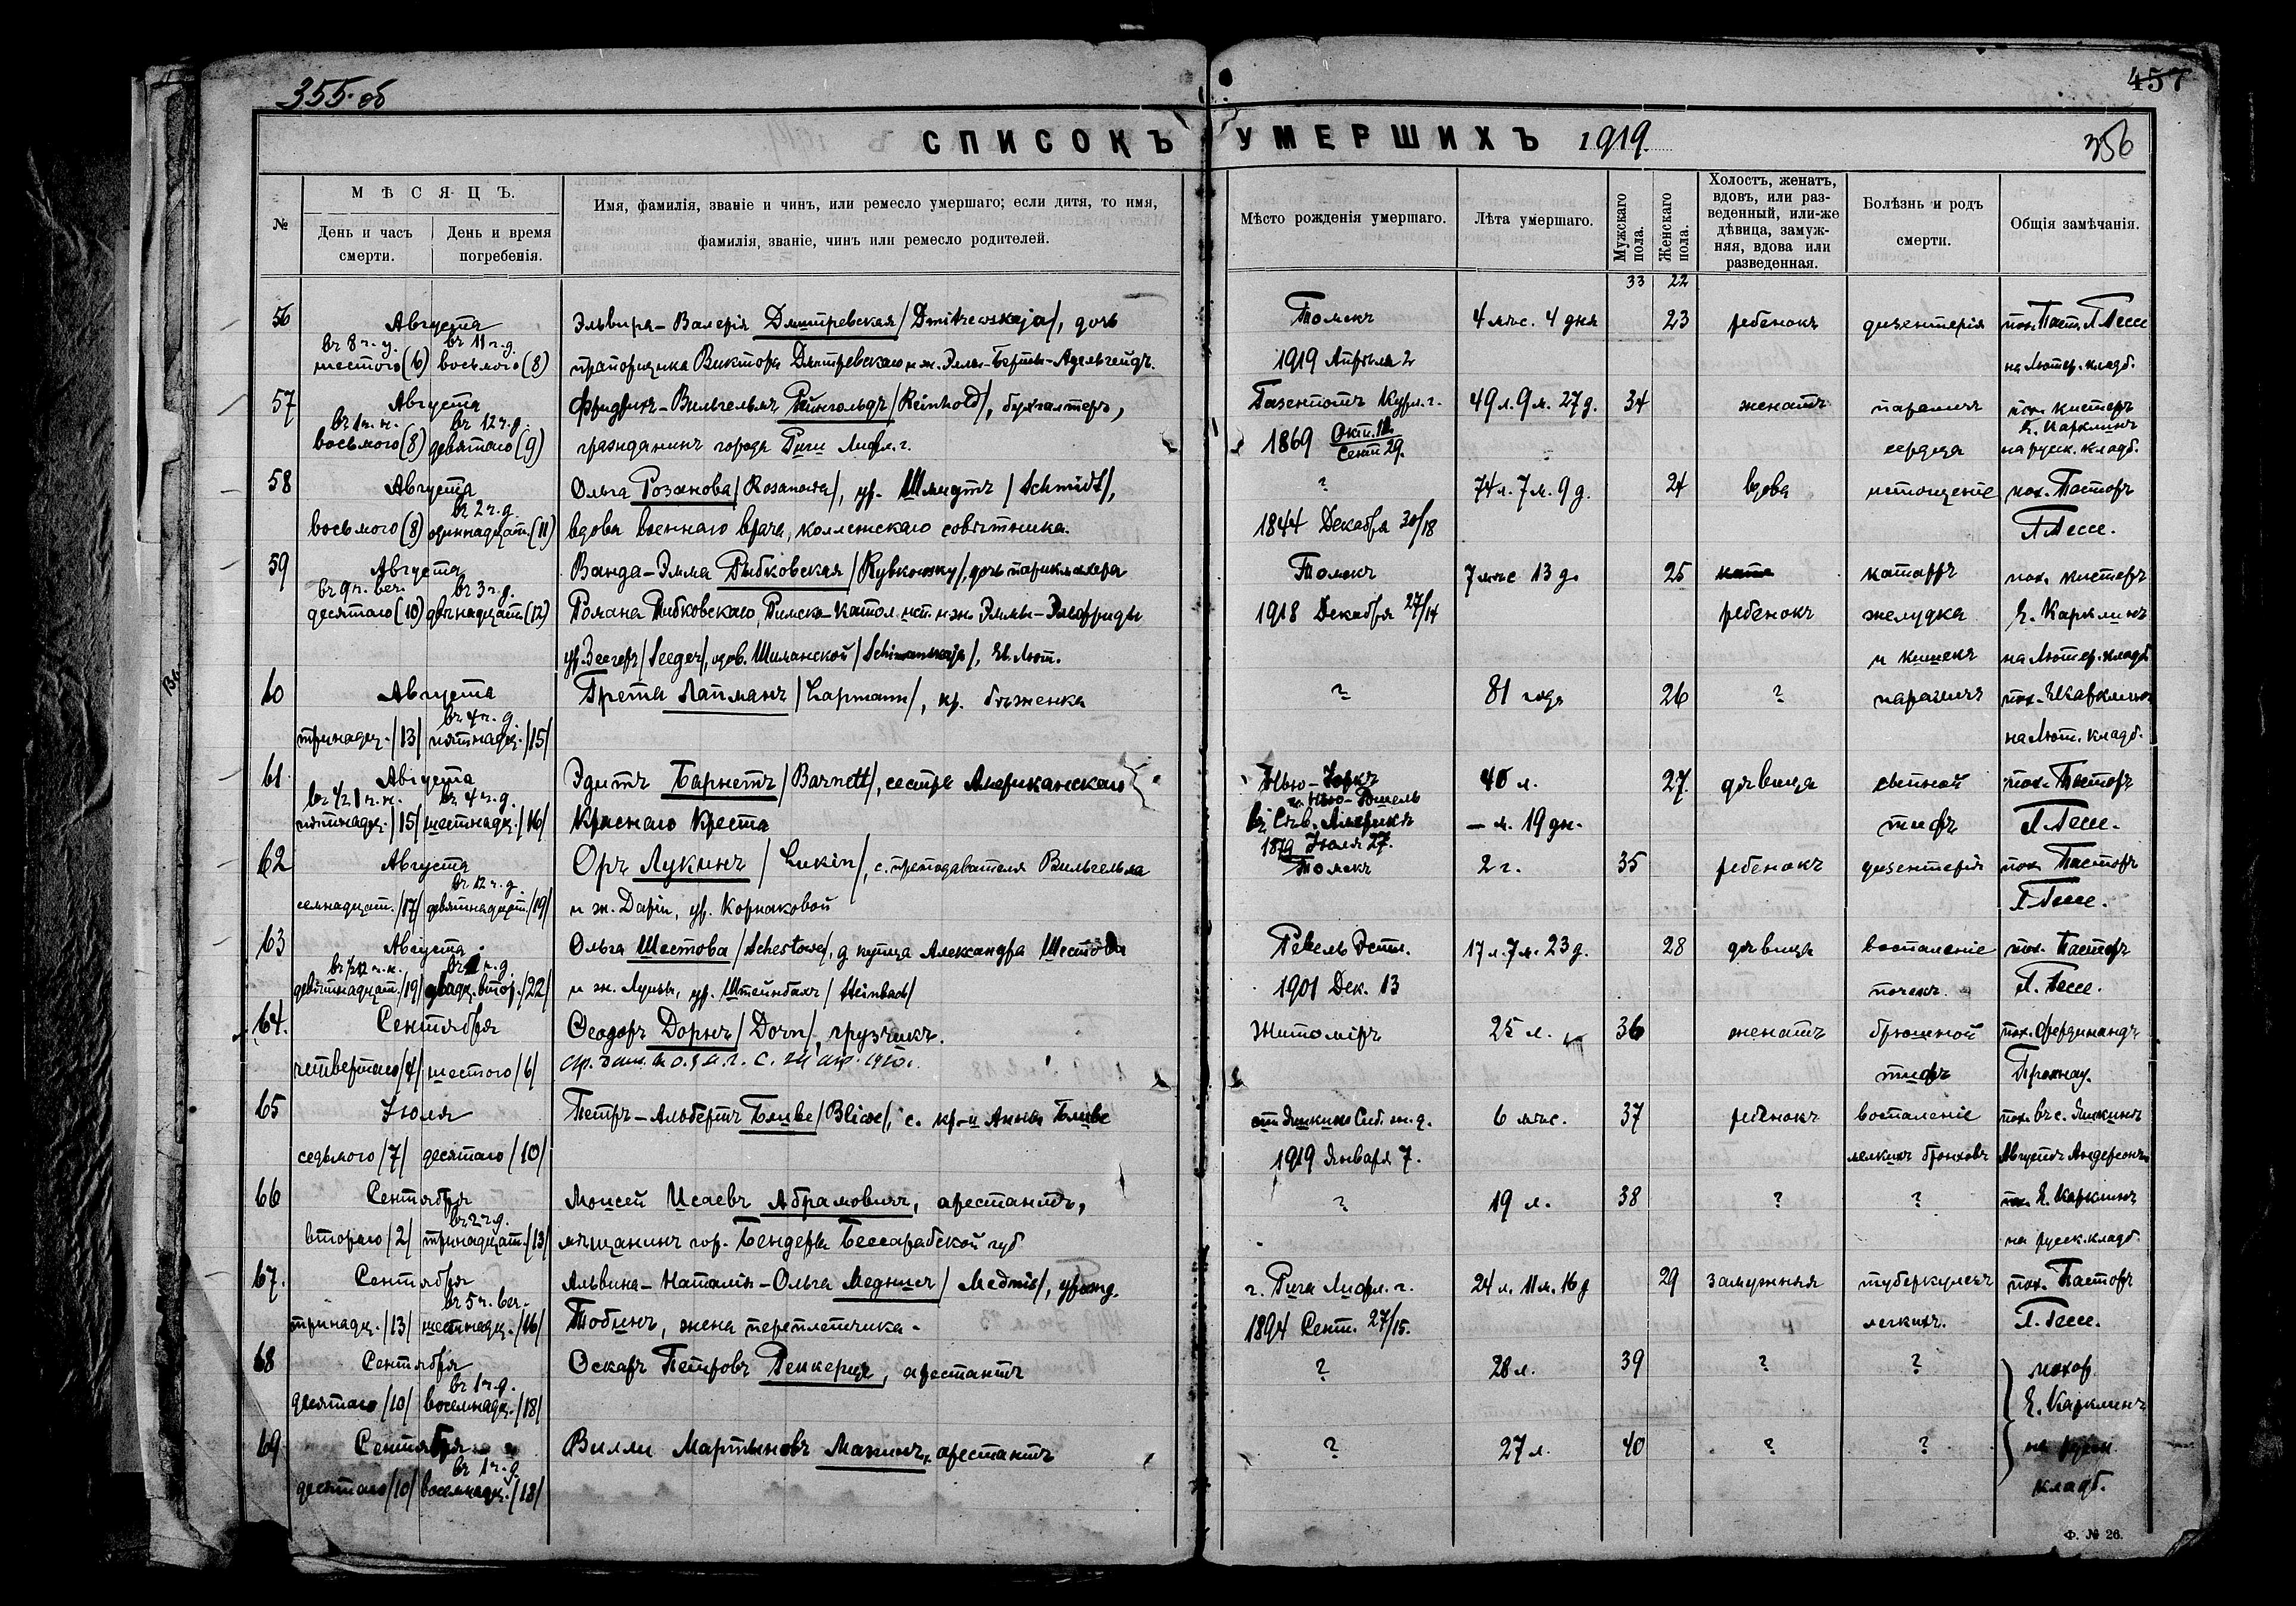 355 об
457
СПИСОКЪ УМЕРШИХЪ 1919.
356
№
МѢСЯЦЪ.
День и часъ смерти.
День и время погребенія.
Имя, фамилія, званіе и чинъ, или ремесло умершаго; если дитя, то имя,
фамилія, званіе, чинъ или ремесло родителей.
Мѣсто рожденія умершаго.
Лѣта умершаго.
Мужскаго пола.
Женскаго пола.
Холостъ, женатъ, вдовъ, или раз-веденный, или-же дѣвица, замуж-няя, вдова или разведенная.
Болѣзнь и родъ смерти.
Общія замѣчанія.
33 22
56 Августа Эльвира-Валерія Дмитревская /Dmitrewskaja/, дочь Томскъ 4 мѣс. 4 дня 23 ребенокъ дизентерія пох. Паст. П. Гессе
въ 8 ч. у. въ 11 ч. д.
шестого (6) восьмого (8) прапорщика Виктора Дмитревскаго и ж. Эллы-Берты-Адельгейдъ. 1919 Апрѣля 2 на Лютер. кладб.
57 Августа Фридрихъ-Вильгельмъ Рейнгольдъ /Reinhold/, бухгалтеръ, Газенпотъ Курл. г. 49 л. 9 м. 27 д. 34 женатъ параличъ пох. кистеръ
въ 1 ч. н. въ 12 ч. д. Е. Карклинъ
восьмого (8) девятаго (9) гражданинъ города Риги Лифл. г. 1869 Окт. 12. Сент. 29. сердца на русск. кладб.
58 Августа Ольга Розанова /Rosanowa/, ур. Шмидтъ /Schmidt/, ? 74 л. 7 м. 9 д. 24 вдова истощеніе пох. Пасторъ
въ 2 ч. д.
восьмого (8) одиннадцат. (11) вдова военнаго врача, коллежскаго совѣтника. 1844 Декабря 30/18 П. Гессе.
59 Августа Ванда-Эмма Рыбковская /Rybkowsky/, дочь парикмахера Томскъ 7 мѣс 13 д. 25 катаръ пох. кистеръ
въ 9 ч. веч. въ 3 ч. д.
десятаго (10) двѣнадцат. (12) Романа Рыбковскаго, Римско-Катол. исп. и ж. Эммы-Эльфриды 1918 Декабря 27/14 ребенокъ желудка Е. Карклинъ
ур. Зеегеръ /Seeger/, Шиманской /Schimanskaja/, Ев. Лют. и кишекъ на Лютер. кладб
60 Августа Грета Лапманъ /Lapmann/, кр. бѣженка ? 81 года 26 ? параличъ пох. Е. Карклинъ
въ 4 ч. д.
тринадц. /13/ пятнадц. /15/ на Лют. кладб.
61 Августа Эдитъ Барнетъ /Barnett/, сестра Американскаго Нью-Іоркъ 40 л. 27. дѣвица сыпной пох. Пасторъ
въ 4 ч. д.
пятнадц. /15/ шестнадц. /16/ Краснаго Креста въ Сѣв. Америкѣ – м. 19 дн. тифъ П. Гессе.
1879 Іюля 27.
62 Августа Оръ Лукинъ /Lukin/, с. преподавателя Вильгельма Томскъ 2 г. 35 ребенокъ дизентерія пох. Пасторъ
въ 12 ч. д.
семнадцат. /17/ девятнадцат. /19/ и ж. Даріи, ур. Корнаковой П. Гессе.
63 Августа Ольга Шестова /Schestowa/, д. купца Александра Шестова Ревель Эстл. 17 л. 7 м. 23 д. 28 дѣвица воспаленіе пох. Пасторъ
девятнадцат. /19/ двадц. втор. /22/ и ж. Луизы, ур. Штейнбахъ /Steinbach/ 1901 Дек. 13 почекъ. П. Гессе.
64. Сентября Ѳеодоръ Дорнъ /Dorn/, грузчикъ. Житоміръ 25 л. 36 женатъ брюшной пох. Фердинандъ
четвертаго /4/ шестого /6/ тифъ
65 Іюля Петръ-Альбертъ Бливе /Bliwe/, с. кр-и Анны Бливе 6 мѣс. 37 ребенокъ воспаленіе пох. въ с.
седьмого /7/ десятаго /10/ 1919 Января 7. мелкихъ бронховъ Августъ Андерсонъ
66 Сентября Моисей Исаевъ Абрамовичъ, арестантъ, ? 19 л. 38 ? ? пох. Е. Карклинъ
въ 2 ч. д.
второго /2/ тринадцат. /13/ мѣщанинъ гор. Бендеры Бессарабской губ на русск. кладб.
67. Сентября Альвина-Наталія-Ольга Меднисъ /Mednis/, урожд. г. Рига Лифл. г. 24 л. 11 м. 16 д 29 замужняя туберкулезъ пох. Пасторъ
въ 5 ч. веч.
тринадц. /13/ шестнадц. /16/ Тобинъ, жена переплетчика. 1894 Сент. 27/15. легкихъ. П. Гессе.
68 Сентября Оскаръ Петровъ , арестантъ ? 28 л. 39 ? ? похор.
въ 1 ч. д.
десятаго /10/ восемнадц. /18/ Е. Карклинъ
69 Сентября Вилли Мартыновъ , арестантъ ? 27 л. 40 ? ? на русск.
въ 1 ч. д
десятаго /10/ восемнадц. /18/ кладб.
Ф. № 26.